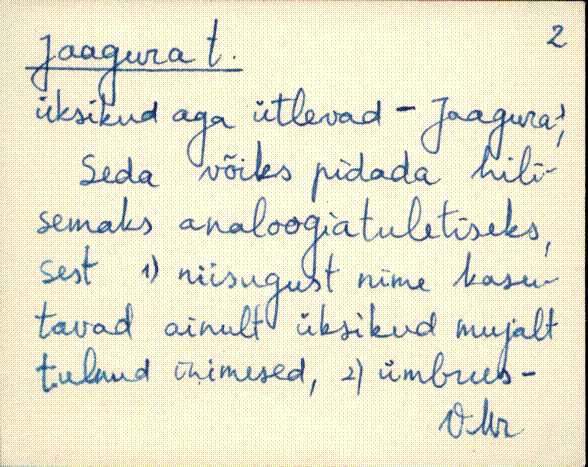 Jaagura t. 2
üksikud aga ütlevad - Jaagura),
Seda võiks pidada hili-
semaks analoogiatuletiseks,
sest 1) niisugust nime kasu-
tavad ainult üksikud mujalt
tulnud inimesed, 2) ümbrus-